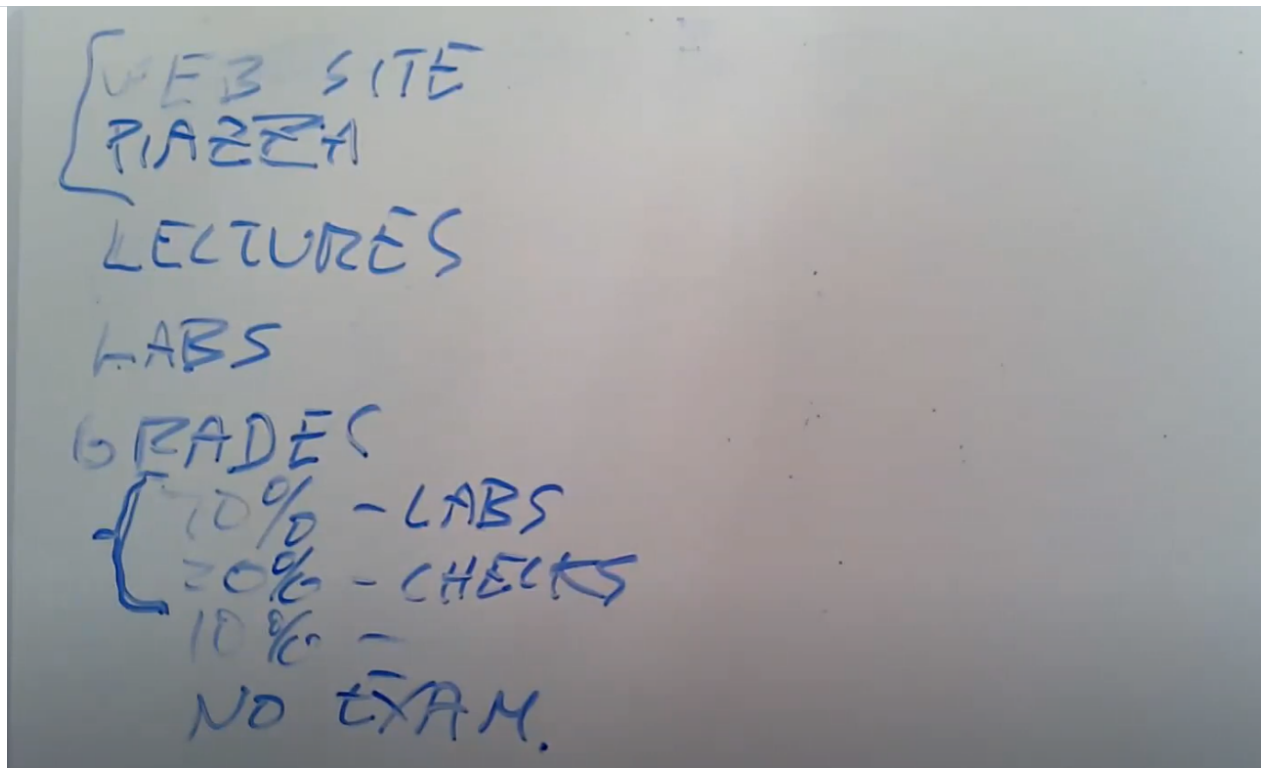 WEB SITE
PIAZZA
LECTURES
LABS
GRADES
70% - LABS
20% - CHECKS
10% -
NO EXAM.